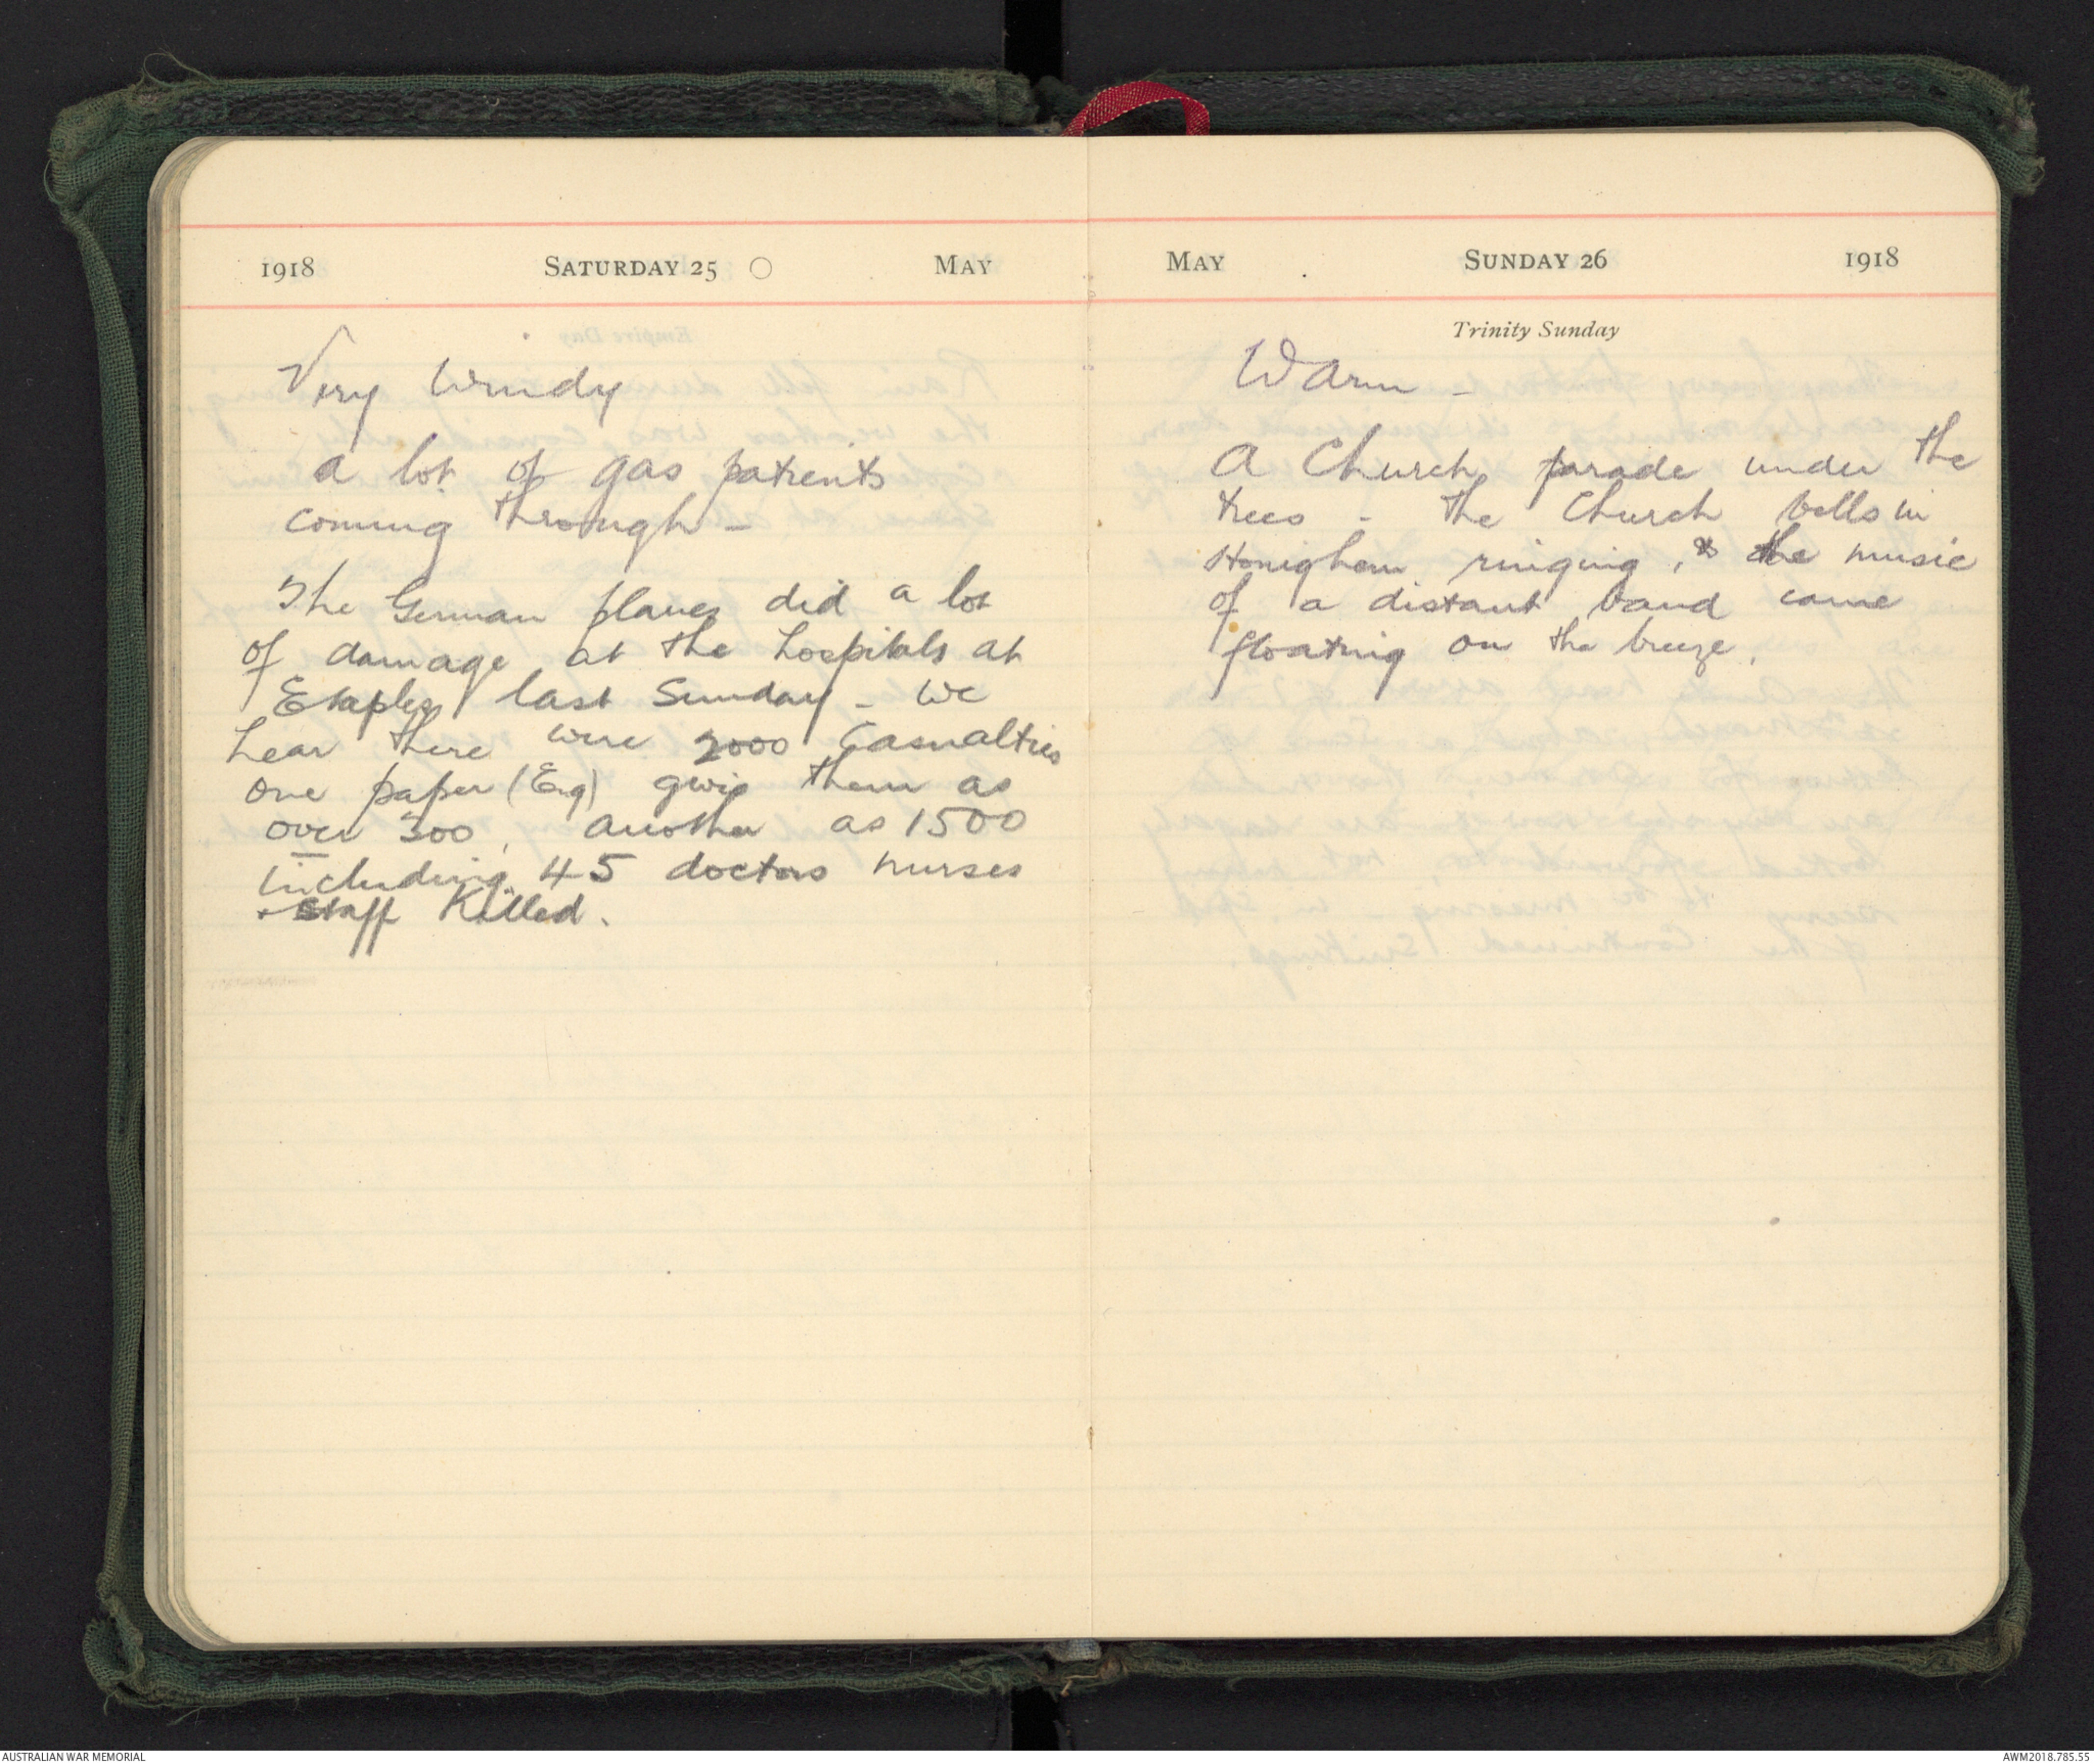 1918 SATURDAY 25 MAY
Very Windy
a lot of gas patients
coming through -
The German planes did a lot
of damage at the hospitals at
Etaples last Sunday - We
hear there were 2000 Casualties
one paper (Eng) givis them as
over 300, another as 1500
including 45 doctors nurses
+ staff Killed.
MAY SUNDAY 26 1918
Trinity Sunday
Warm -
A Church parade under the
trees - the Church bells in
Honighem ringing, & the music
of a distant band came
floating on the breeze.
AUSTRALIAN WAR MEMORIAL
AWM2018.785.35